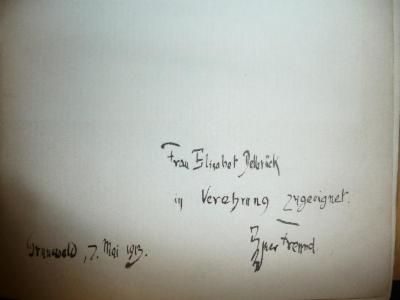 Frau Elisabet Delbrück
in Verehrung zugeeignet.
Grunewald, 7. Mai 1913.